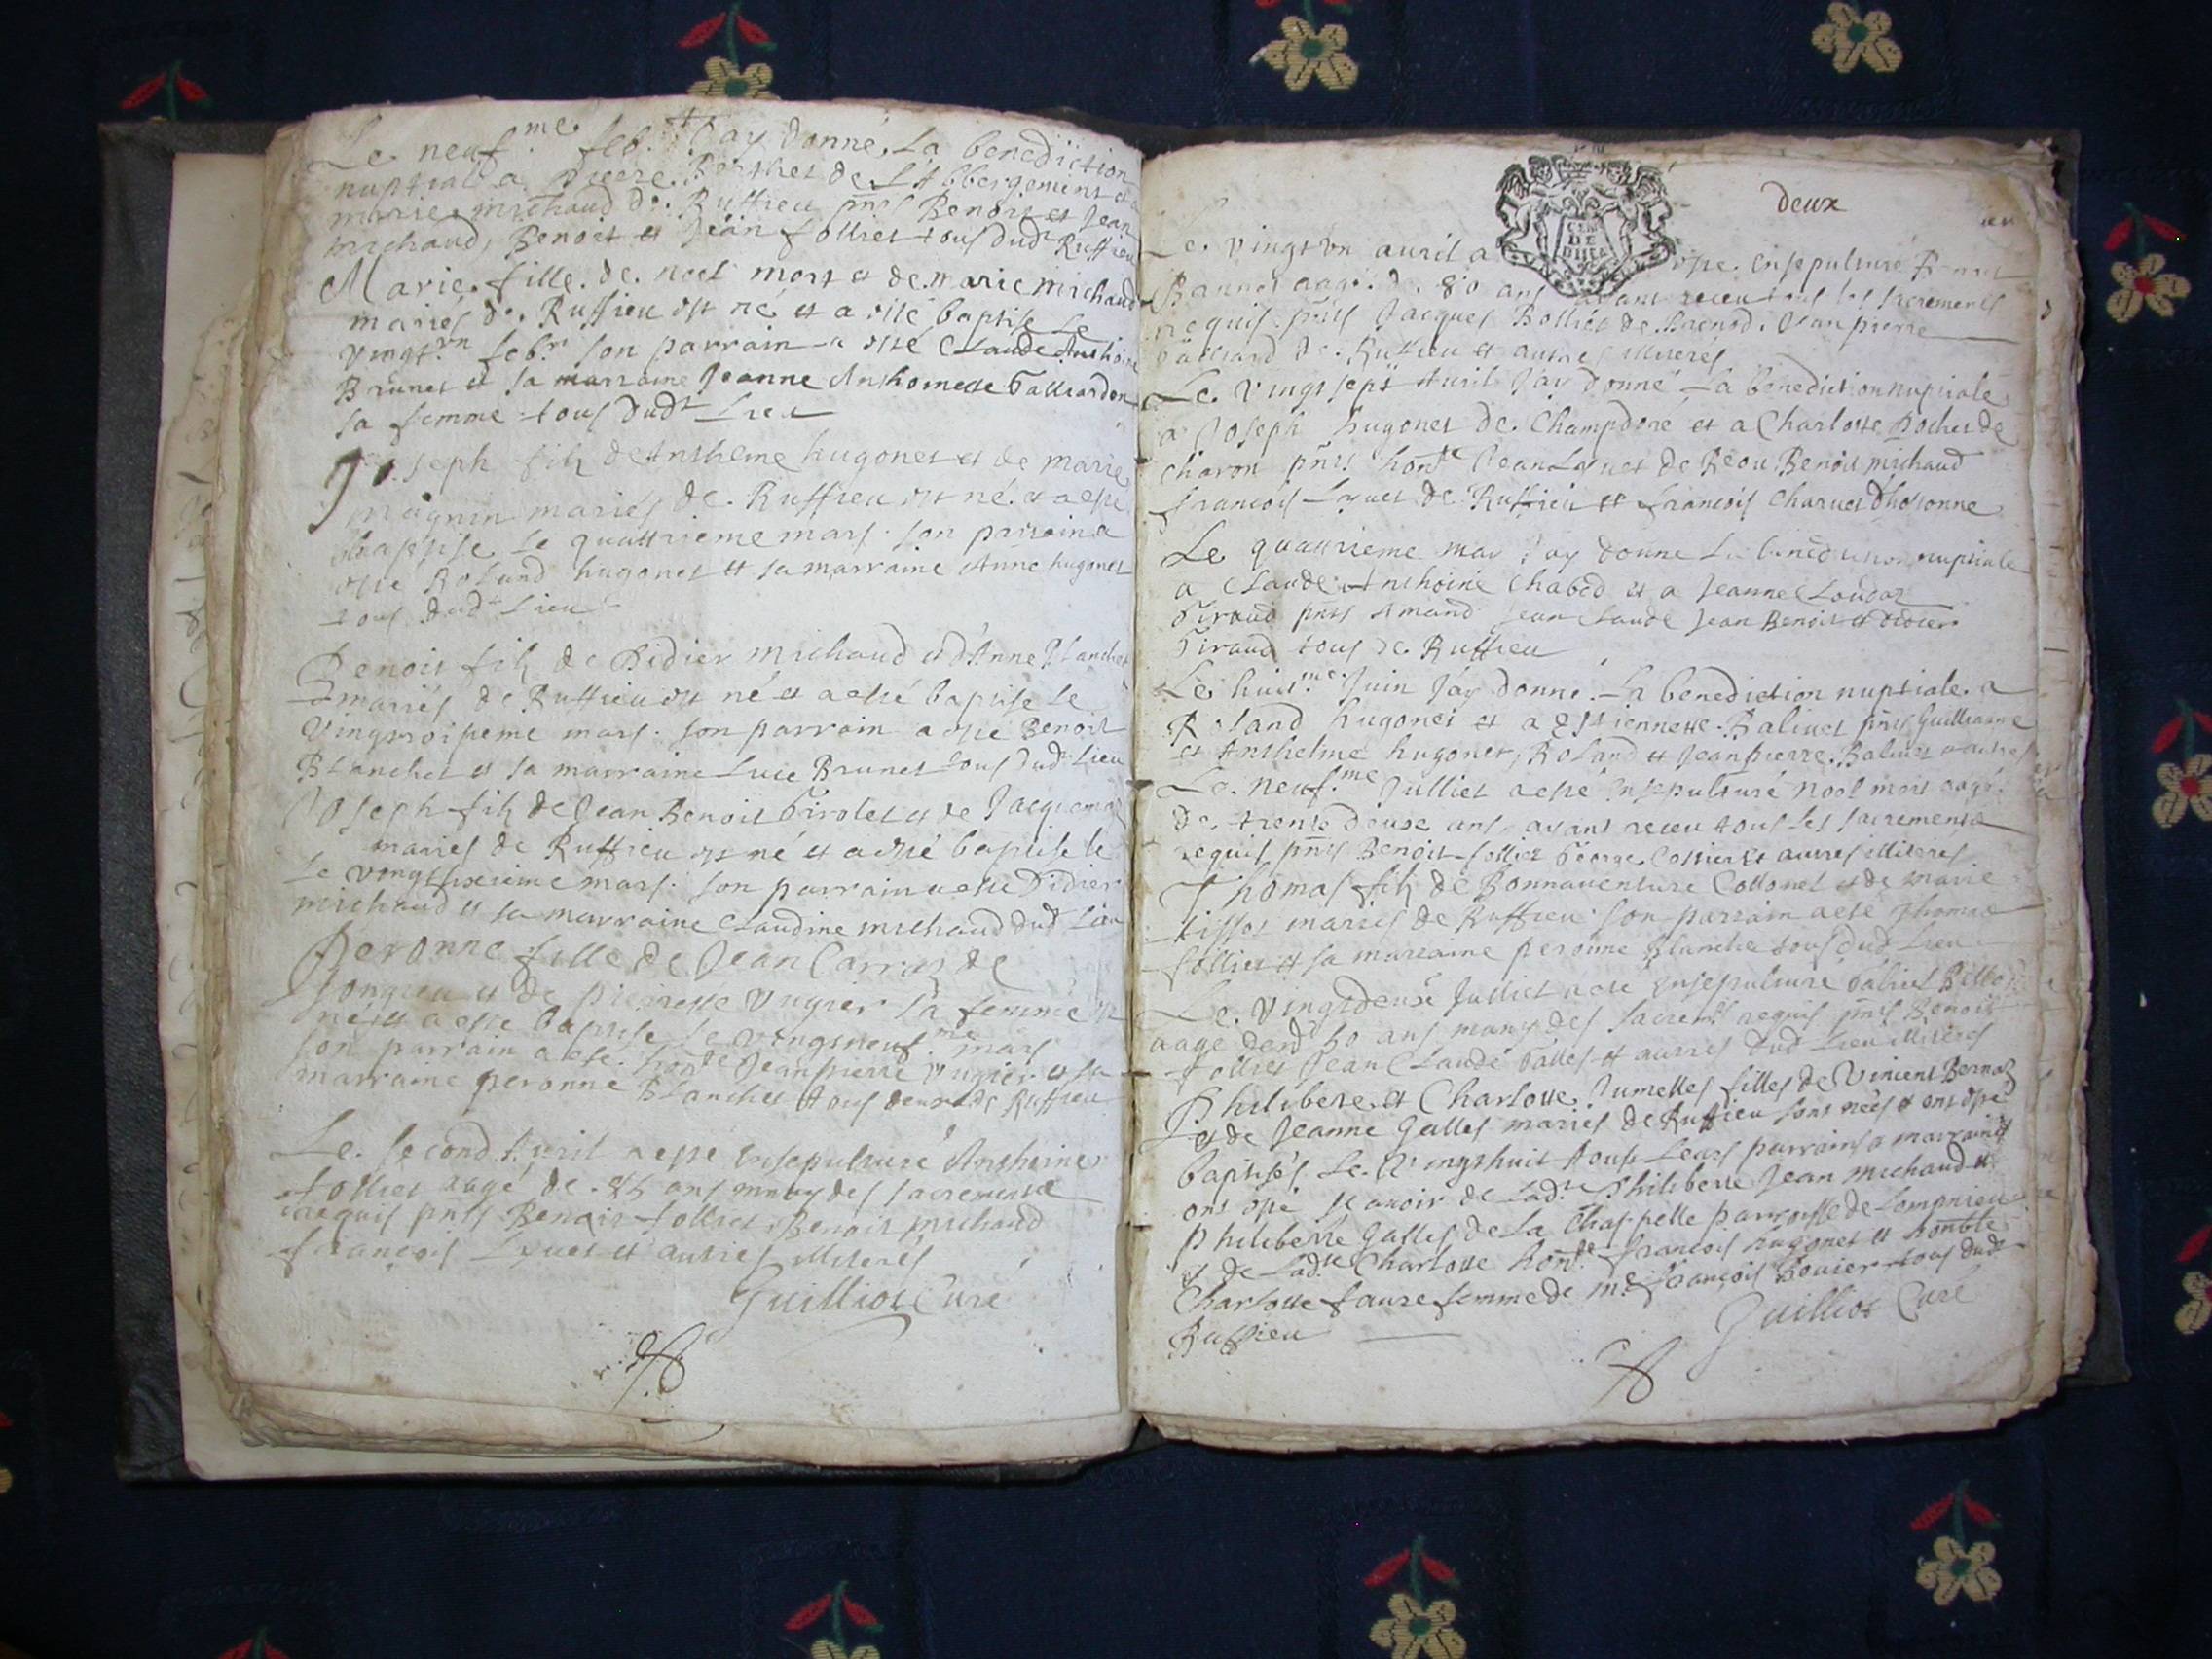 Le neuf.me feb. Jay donné La benediction
nuptial a pierre Berthet de L'Abbergement et a
marie michaud de Ruffieu pnts Benoit et Jean
michaud, Benoit et Jean follies tous dudt Ruffieu
Marie fille de noel mort et de marie michaud
mariés de Ruffieu est né et a esté baptise Le
vingt un febr son parrain a esté Claude Anthoine
Brunet et sa marraine Jeanne Anthomette
sa femme tous dudt Lieu
Joseph fils de Anthelme hugonet et de marie
magnin mariés de Ruffieu est né et a esté
baptise le quattrieme mars son parrain a
esté Roland hugonet et sa marraine Anne hugonet
tous dudt Lieu
Benoit fils de Didier michaud et d'Anne Blanchet
mariés de Ruffieu est né et a esté baptise le
vingtroisieme mars son parrain a esté Benoit
Blanchet et sa marraine Luce Brunet tous dudt Lieu
Joseph fils de Jean Benoit Girolet et de Jacquema
mariés de Ruffieu est né et a esté baptise le
le vingtsixieme mars son parrain a esté Didier
michaud et sa marraine Claudine michaud dud Lieu
Peronne fille de Jean Carraz de
songieu et de pierrette vugier sa femme est
né et a esté baptise le vingtneuf.me mars
son parrain a esté honble Jeanpierre vugier et sa
marraine peronne Blanchet tous deux de Ruffieu
Le second Auril a esté Ensepulturé Antheine
follies aagé de 85 ans muny des sacrements
requis pnts Benoit follies, Benoit michaud
françois Lyuet et autres illiterés
Guilliot Curé
deux
Le vingt un auril a esté ensepulturé
Bannet aagé de 80 ans ayant receu tous les sacrements
requis pnts Jacques Bolliet de brenod, Jean pierre
de Ruffieu et autres illiterés
Le vingtsept Auril Jay donné La benediction nuptiale
a Joseph hugonet de Champdoré et a Charlotte Rochet de
charon pnts hont Jean Lyuet de Reou Benoit michaud
francois Lyuet de Ruffieu et francois charuet dhotonne
Le quattrieme may Jay donne La benediction nuptiale
a Claude Anthoine Chabod et a Jeanne Loudoz
Giraud pnts Amand Jean Claude Jean Benoit et didier
Giraud tous de Ruffieu
Le huit.me Juin Jay donné La benediction nuptiale a
Roland hugonet et a Estiennette Baliuet pnts Guilliaume
et Anthelme hugonet, Roland et Jeanpierre Baliuet et autres
Le neuf.me Julliet a esté Ensepulturé noel mort aagé
de trente deux ans ayant receu tous les sacrements
requis pnts Benoit follies George Cottier et autres illiterés
Thomas fils de Bonnauenture Collonet et de marie
tissot mariés de Ruffieu son parrain a esté Thomas
follies et sa marraine peronne Blanche tous dud Lieu
Le vingtdeuxe Julliet a esté ensepulturé
aagé denv 50 ans muny des sacremts requis pnts Benoit
follies Jean Claude Galles et autres dud Lieu illiterés
Philiberte et Charlotte Jumelles filles de Vincent Bernaz
et de Jeanne Galles mariés de Ruffieu sont neés et ont esté
baptisés Le vingthuit tous Leurs parrains et marraines
ont esté scauoir de ladte Philiberte Jean michaud et
Philiberte Galles de La Chappelle parroisse de Lompnieu
et de ladte Charlotte honle francois hugonet et honble
Charlotte faure femme de mre françois Bouier tous dudt
Ruffieu
Guilliot Curé